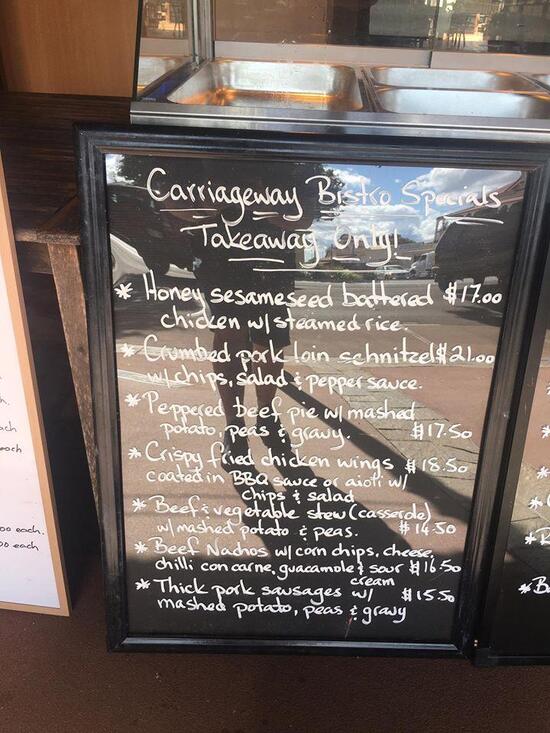 Carriageway Bistro Specials
Takeaway Only!
* Honey sesameseed battered $17.00
chicken w/ steamed rice.
* Crumbed pork loin schnitzel $21.00
w/ chips, salad & pepper sauce.
* Peppered beef pie w/ mashed
potato, peas & gravy. $17.50
* Crispy fried chicken wings $18.50
coated in BBQ sauce or aioli w/
chips & salad
* Beef & vegetable stew (casserole)
w/ mashed potato & peas. $14.50
* Beef Nachos w/ corn chips, cheese,
chilli con carne, guacamole & sour $16.50
cream
* Thick pork sausages w/ $15.50
mashed potato, peas & gravy
each
each.
each